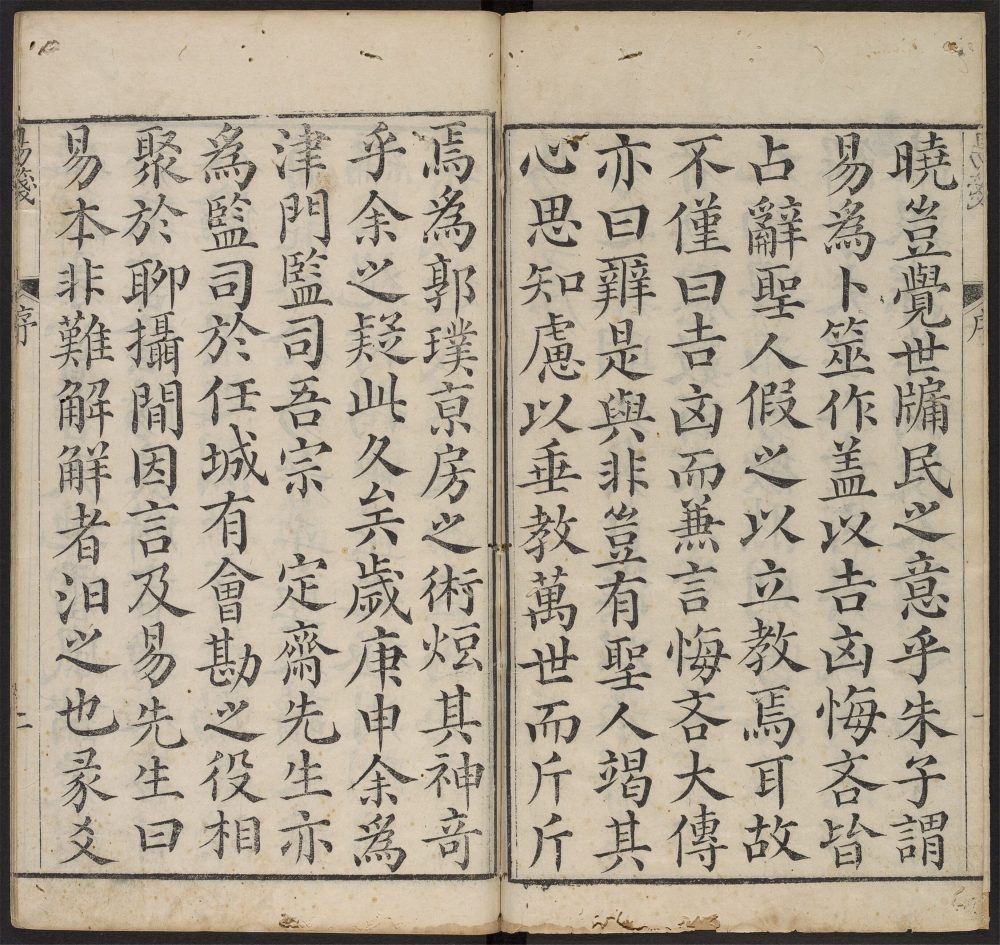 曉豈覺世牖民之意乎朱子謂
易為卜筮作盖以吉凶悔吝皆
占辭聖人假之以立教焉耳故
不僅曰吉凶而兼言悔吝大傳
亦曰辨是與非豈有聖人竭其
心思知慮以垂教萬世而斤斤
焉為郭璞京房之術炫其神奇
乎余之疑此久矣歲庚申余為
津門監司吾宗 定齋先生亦
為監司於任城有會勘之役相
聚於聊攝間因言及易先生曰
易本非難解解者汩之也彖爻
易箋
序
二